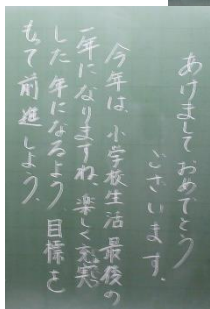 あけましておめでとう
ございます。
今年は、小学校生活最後の
一年になりますね。楽しく充実
した年になるよう、目標を
もって前進しよう。